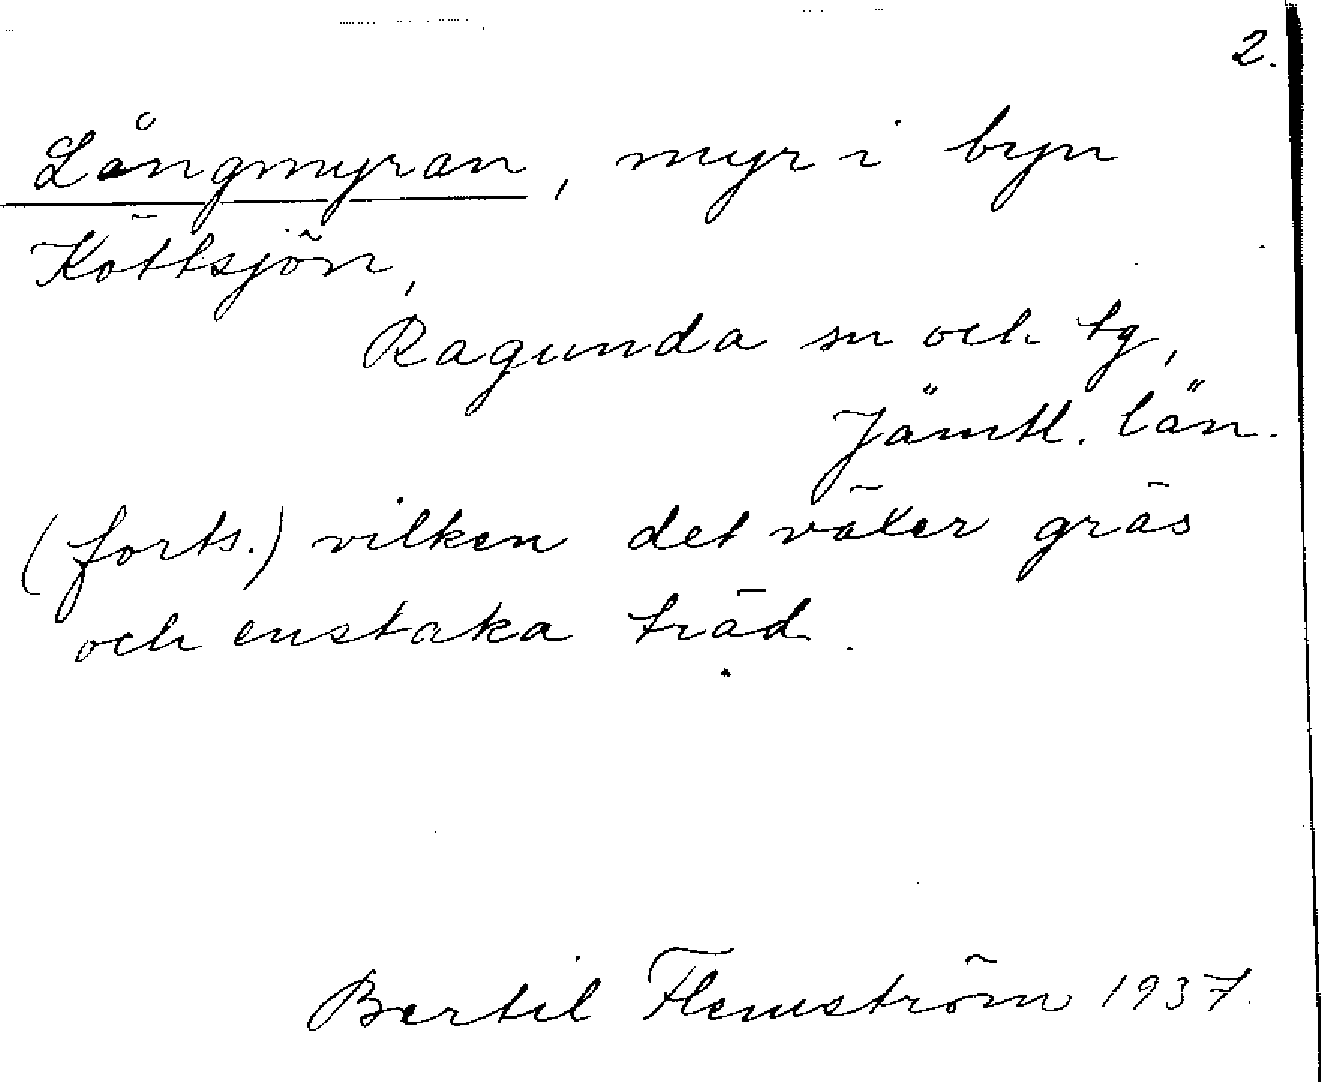 2.
Långmyran, myr i byn
Köttsjön,
Ragunda sn och tg,
Jämtl. län.
(forts.) vilken det växer gräs
och enstaka träd.
Bertil Flemström 1937.